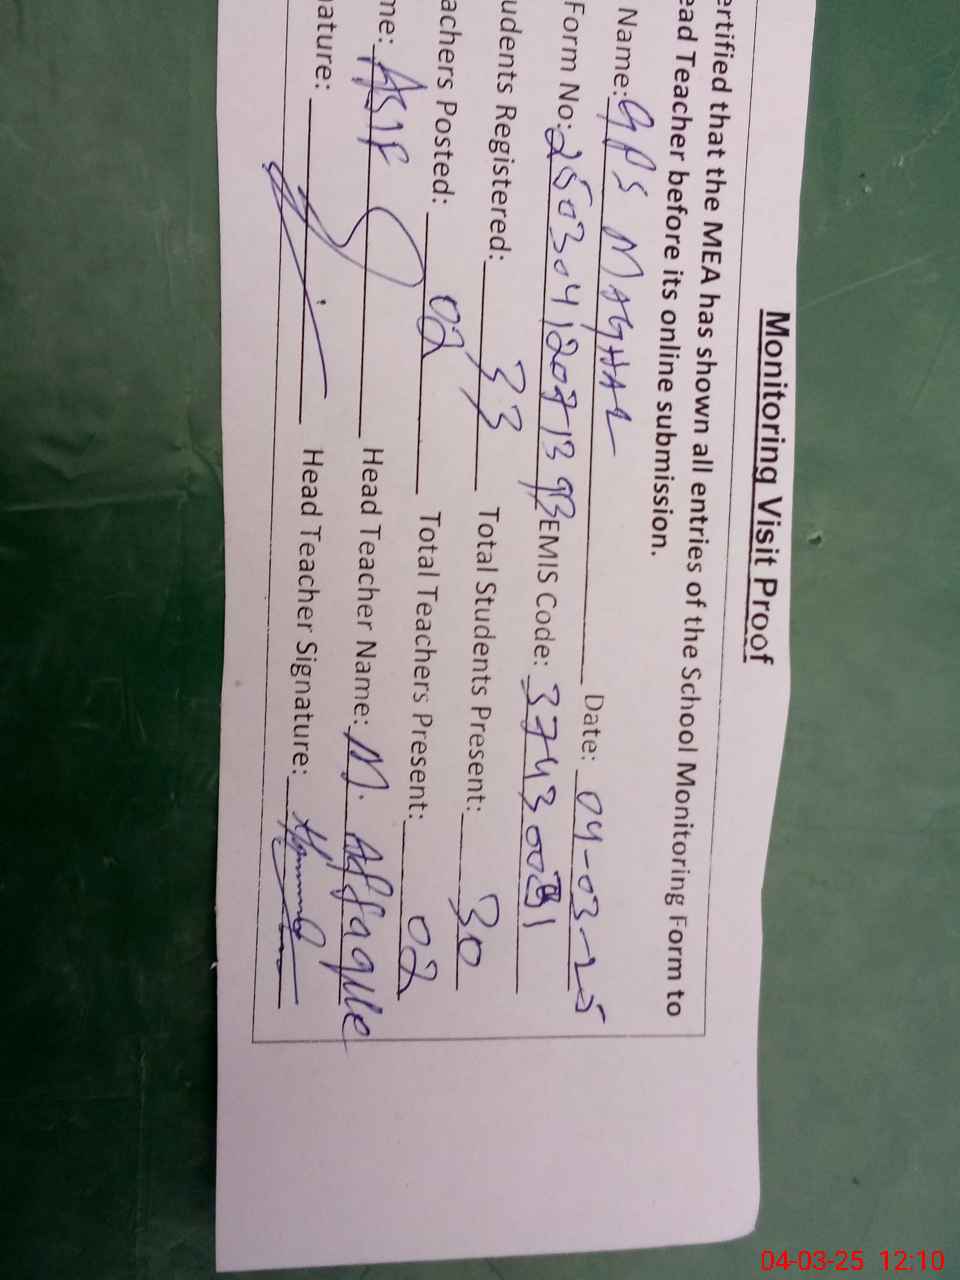 Monitoring Visit Proof
ertified that the MEA has shown all entries of the School Monitoring Form to
ead Teacher before its online submission.
Name: GPS MAGHAL Date: 04-03-25
Form No: EMIS Code:
udents Registered: 33 Total Students Present: 30
achers Posted: 02 Total Teachers Present: 02
me: ASIF Head Teacher Name: M. Asfaque
nature: Head Teacher Signature:
04-03-25 12:10